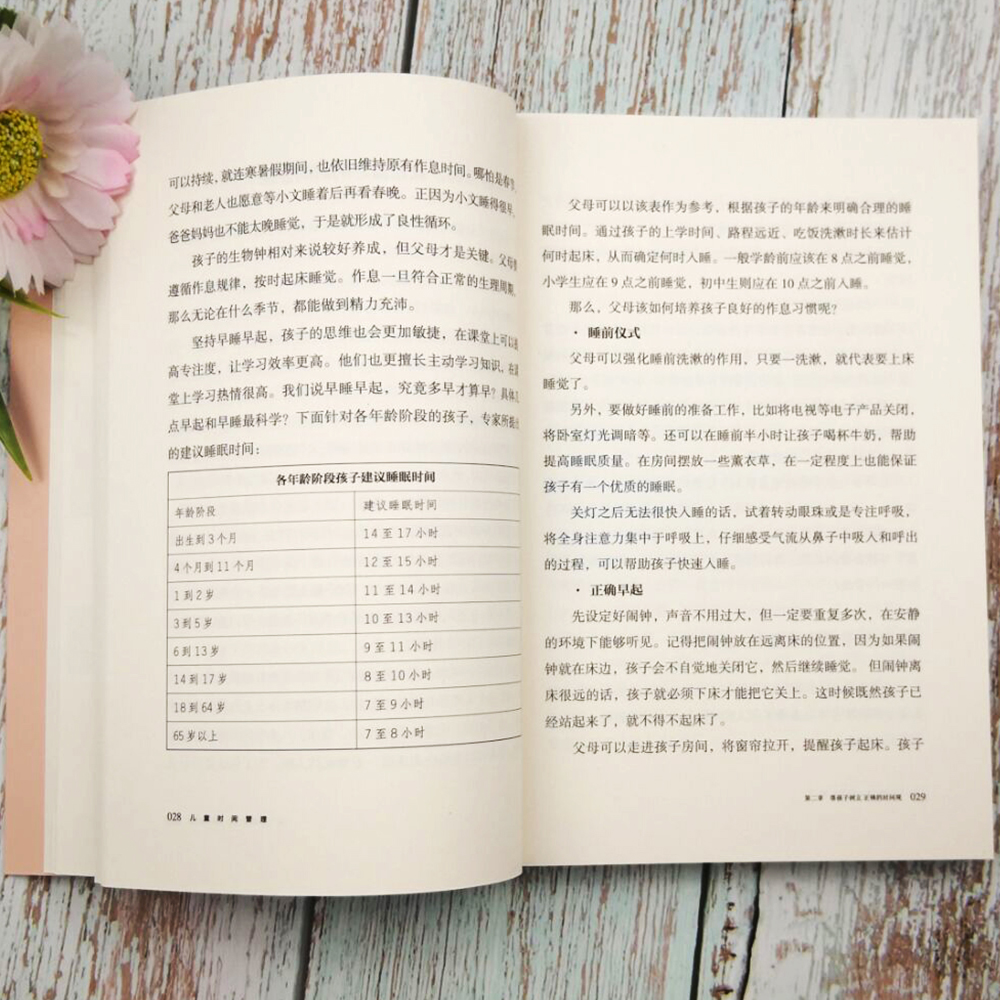 可以持续，就连寒暑假期间，也依旧维持原有作息时间。哪怕是春节，
父母和老人也愿意等小文睡着后再看春晚。正因为小文睡得很早，
爸爸妈妈也不能太晚睡觉，于是就形成了良性循环。
孩子的生物钟相对来说较好养成，但父母才是关键。父母
遵循作息规律，按时起床睡觉。作息一旦符合正常的生理周期，
那么无论在什么季节，都能做到精力充沛。
坚持早睡早起，孩子的思维也会更加敏捷，在课堂上可以
高专注度，让学习效率更高。他们也更擅长主动学习知识，在
堂上学习热情很高。我们说早睡早起，究竟多早才算早？具体几
点早起和早睡最科学？下面针对各年龄阶段的孩子，专家所
的建议睡眠时间：
各年龄阶段孩子建议睡眠时间
年龄阶段 建议睡眠时间
出生到3个月 14 至 17 小时
4个月到11个月 12 至 15 小时
1到2岁 11 至 14 小时
3到5岁 10 至 13 小时
6到13岁 9 至 11 小时
14到17岁 8 至 10 小时
18到64岁 7 至 9 小时
65岁以上 7 至 8 小时
028 儿童时间管理
父母可以以该表作为参考，根据孩子的年龄来明确合理的睡
眠时间。通过孩子的上学时间、路程远近、吃饭洗漱时长来估计
何时起床，从而确定何时入睡。一般学龄前应该在8点之前睡觉，
小学生应在9点之前睡觉，初中生则应在10点之前入睡。
那么，父母该如何培养孩子良好的作息习惯呢？
· 睡前仪式
父母可以强化睡前洗漱的作用，只要一洗漱，就代表要上床
睡觉了。
另外，要做好睡前的准备工作，比如将电视等电子产品关闭，
将卧室灯光调暗等。还可以在睡前半小时让孩子喝杯牛奶，帮助
提高睡眠质量。在房间摆放一些薰衣草，在一定程度上也能保证
孩子有一个优质的睡眠。
关灯之后无法很快入睡的话，试着转动眼珠或是专注呼吸，
将全身注意力集中于呼吸上，仔细感受气流从鼻子中吸入和呼出
的过程，可以帮助孩子快速入睡。
· 正确早起
先设定好闹钟，声音不用过大，但一定要重复多次，在安静
的环境下能够听见。记得把闹钟放在远离床的位置，因为如果闹
钟就在床边，孩子会不自觉地关闭它，然后继续睡觉。但闹钟离
床很远的话，孩子就必须下床才能把它关上。这时候既然孩子已
经站起来了，就不得不起床了。
父母可以走进孩子房间，将窗帘拉开，提醒孩子起床。孩子
第二章 帮孩子树立正确的时间观 029